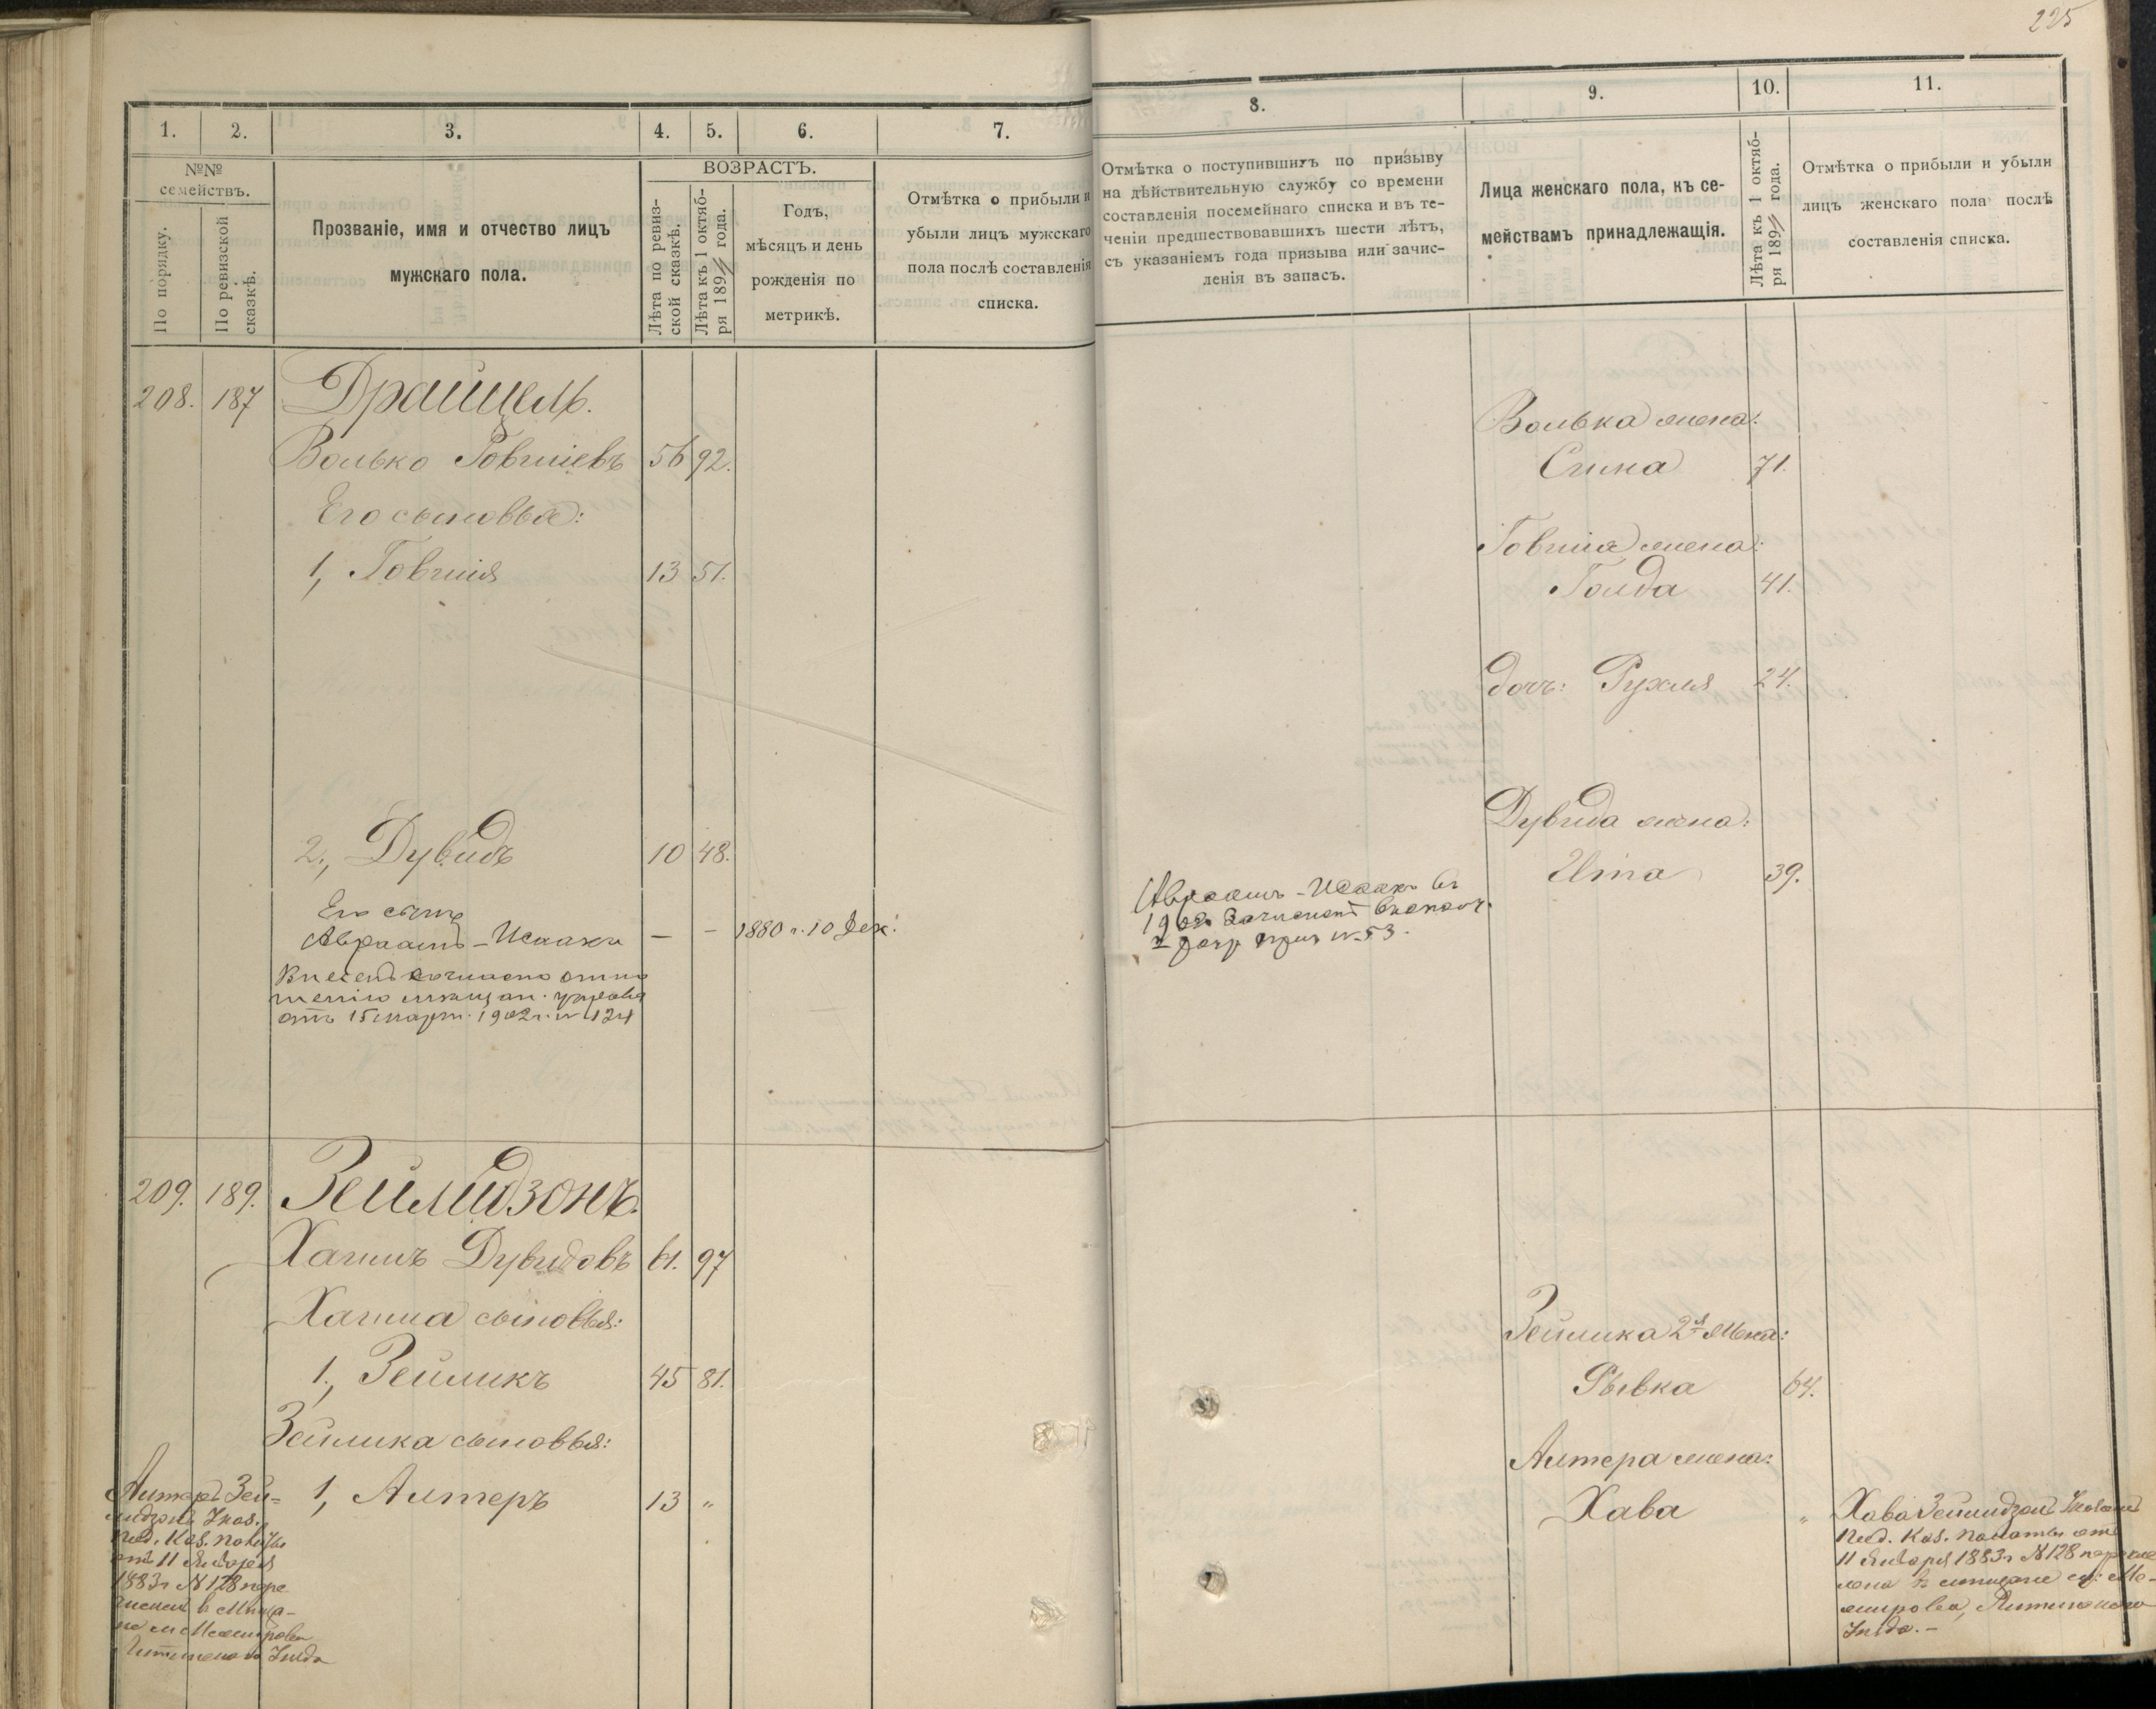 225
1.
2.
3.
4.
5.
6.
7.
№№
семействъ.
По порядку.
По ревизской
сказкѣ.
Прозваніе, имя и отчество лицъ
мужскаго пола.
ВОЗРАСТЪ.
Лѣта по ревиз-
ской сказкѣ.
Лѣта къ 1 октяб-
ря 189 года.
Годъ,
мѣсяцъ и день
рожденія по
метрикѣ.
Отмѣтка о прибыли и
убыли лицъ мужскаго
пола послѣ составленія
списка.
208. 187 Драйцель.
Волько Говшіевъ 56 92.
Его сыновья:
1, Говшія 13 51.
2., Дувидъ 10 48.
Его сынъ
Авраамъ-Исаакъ — – 1880 г. 10 Дек.
Внесенъ согласно отно
шенію мѣщан. управы
отъ 15 март. 1902 г. № 124
209. 189. Зейлидзонъ.
Хаимъ Дувидовъ 61. 97
Хаима сыновья:
1., Зейликъ 45 81.
Зейлика сыновья:
1, Алтеръ 13 „
Алтеръ Зей-
лидзонъ Указ.
Под. Каз. Палаты
отъ 11 Января
1883 г № 128 пере
численъ в Мѣща-
не м. Немирова
Уѣзда
8.
9.
10.
11.
Отмѣтка о поступившихъ по призыву
на дѣйствительную службу со времени
составленія посемейнаго списка и въ те-
ченіи предшествовавшихъ шести лѣтъ,
съ указаніемъ года призыва или зачис-
ленія въ запасъ.
Лица женскаго пола, къ се-
мействамъ принадлежащія.
Лѣта къ 1 октяб-
ря 189 года.
Отмѣтка о прибыли и убыли
лицъ женскаго пола послѣ
составленія списка.
Волька жена:
71.
Говшія жена:
Голда 41.
дочь: Рухля 24.
Дувида жена:
Ита 39.
Авраамъ-Исаакъ въ
1902 Зачисленъ в ополч.
2 разр. приз № 53.
Зейлика 2я жена:
Рывка 64.
Алтера жена:
Хава „
Хава Зейлидзонъ Указомъ
Под. Каз. Палаты отъ
11 Января 1883 г № 128 перечис
лена в мѣщане м. Не-
мирова,
Уѣзда. –